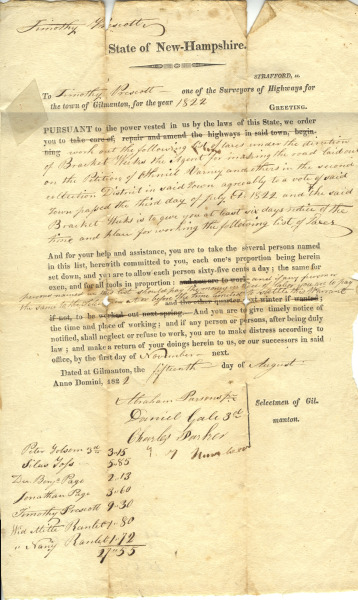 Timothy Prescott
State of New-Hampshire.
STRAFFORD, ss.
To Timothy Prescott one of the Surveyors of Highways for
the town of Gilmanton, for the year 1822 GREETING.
PURSUANT to the power vested in us by the laws of this State, we order
you to take care of, repair and amend the highways in said town, begin-
ning work out the following Taxes under the direction
of Bracket Weeks the Agent for making the road laid out
on the Petition of Varney and others in the second
collection District in said town agreeably to a vote of said
Town passed the third day of July 1822 and the said
Bracket Weeks is to give you at least six days notice of the
time and place for working the following list of Taxes
And for your help and assistance, you are to take the several persons named
in this list, herewith committed to you, each one's proportion being herein
set down, and you are to allow each person sixty-five cents a day; the same for
oxen, and for all tools in proportion; and you are to work
persons named in this list to pay
the same
next winter if wanted;
if not, to be worked out next spring. And you are to give timely notice of
the time and place of working; and if any person or persons, after being duly
notified, shall neglect or refuse to work, you are to make distress according to
law; and make a return of your doings herein to us, or our successors in said
office, by the first day of November next.
Dated at Gilmanton, the fifteenth day of August
Anno Domini, 1822
Abraham Parsons Jr
Daniel Gale 3d
Charles Parker
Selectmen of Gil-
manton.
Peter Folsom 3d 3-15
Silas Goss 5-85
Den Benja Page 2-13
Jonathan Page 3-60
Timothy Prescott 9-30
Wid Mitte Ranlet 1-80
" Nancy Ranlet 1-72
27-55